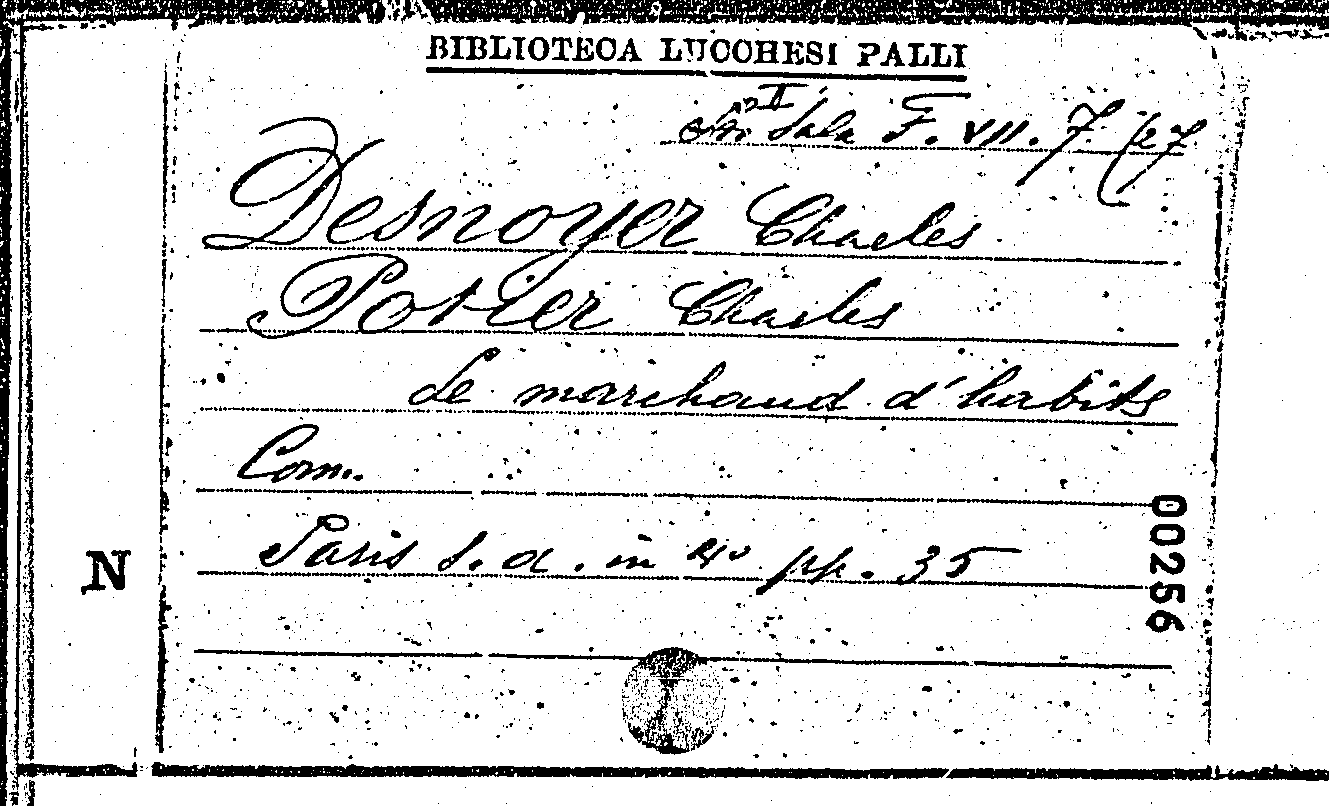 BIBLIOTECA LUCCHESI PALLI
II Sala F. VII. 7. (27
Desnoyer Charles
Potier Charles
Le marchand d'habits
Com.
Paris s. d. in 4º pp. 35
N
00256